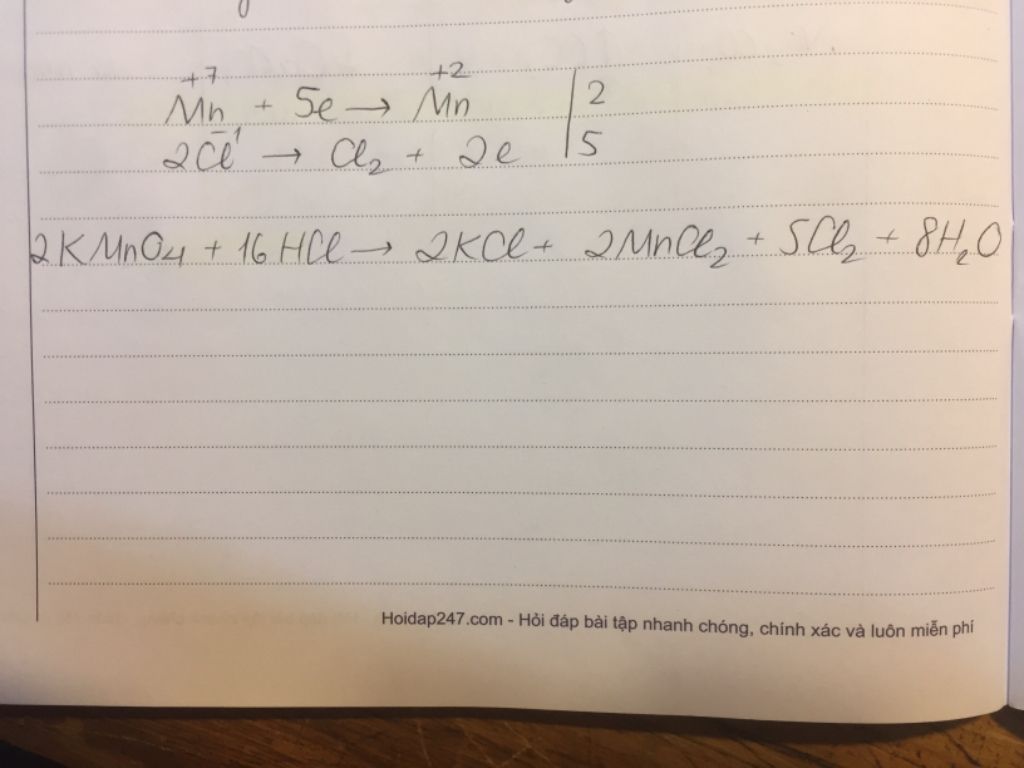 +7 +2
Mn + 5e → Mn | 2
2Cl⁻¹ → Cl₂ + 2e | 5
2KMnO₄ + 16HCl → 2KCl + 2MnCl₂ + 5Cl₂ + 8H₂O
Hoidap247.com - Hỏi đáp bài tập nhanh chóng, chính xác và luôn miễn phí